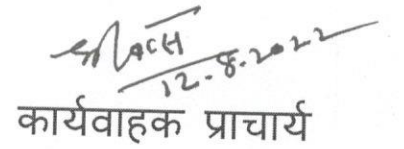 12-8-2022
कार्यवाहक प्राचार्य